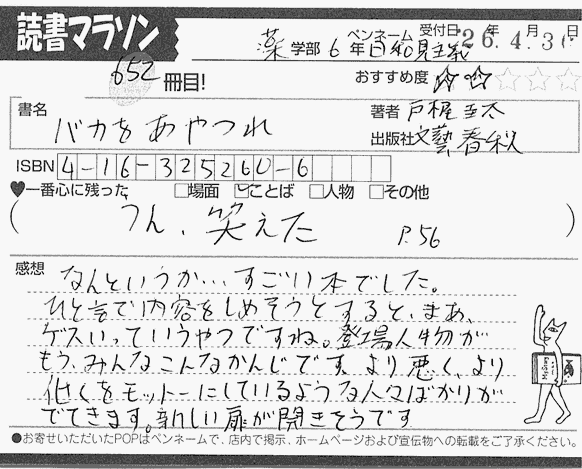 読書マラソン
652 冊目!
薬 学部 6 年 ペンネーム 日和見主義 受付日 26年4月30日
おすすめ度 ☆☆☆☆☆
書名 バカをあやつれ
著者 戸梶圭太
出版社 文藝春秋
ISBN 4-16-325260-6
♥一番心に残った □場面 ☑ことば □人物 □その他
( うん、笑えた P.56 )
感想 なんというか…すごい本でした。
ひと言で内容をしめそうとすると、まあ、
ゲスいっていうやつですね。登場人物が
もう、みんなこんなかんじです。より悪く、より
低くをモットーにしているような人々ばかりが
でてきます。新しい扉が開きそうです
●お寄せいただいたPOPはペンネームで、店内で掲示、ホームページおよび宣伝物への転載をご了承ください。